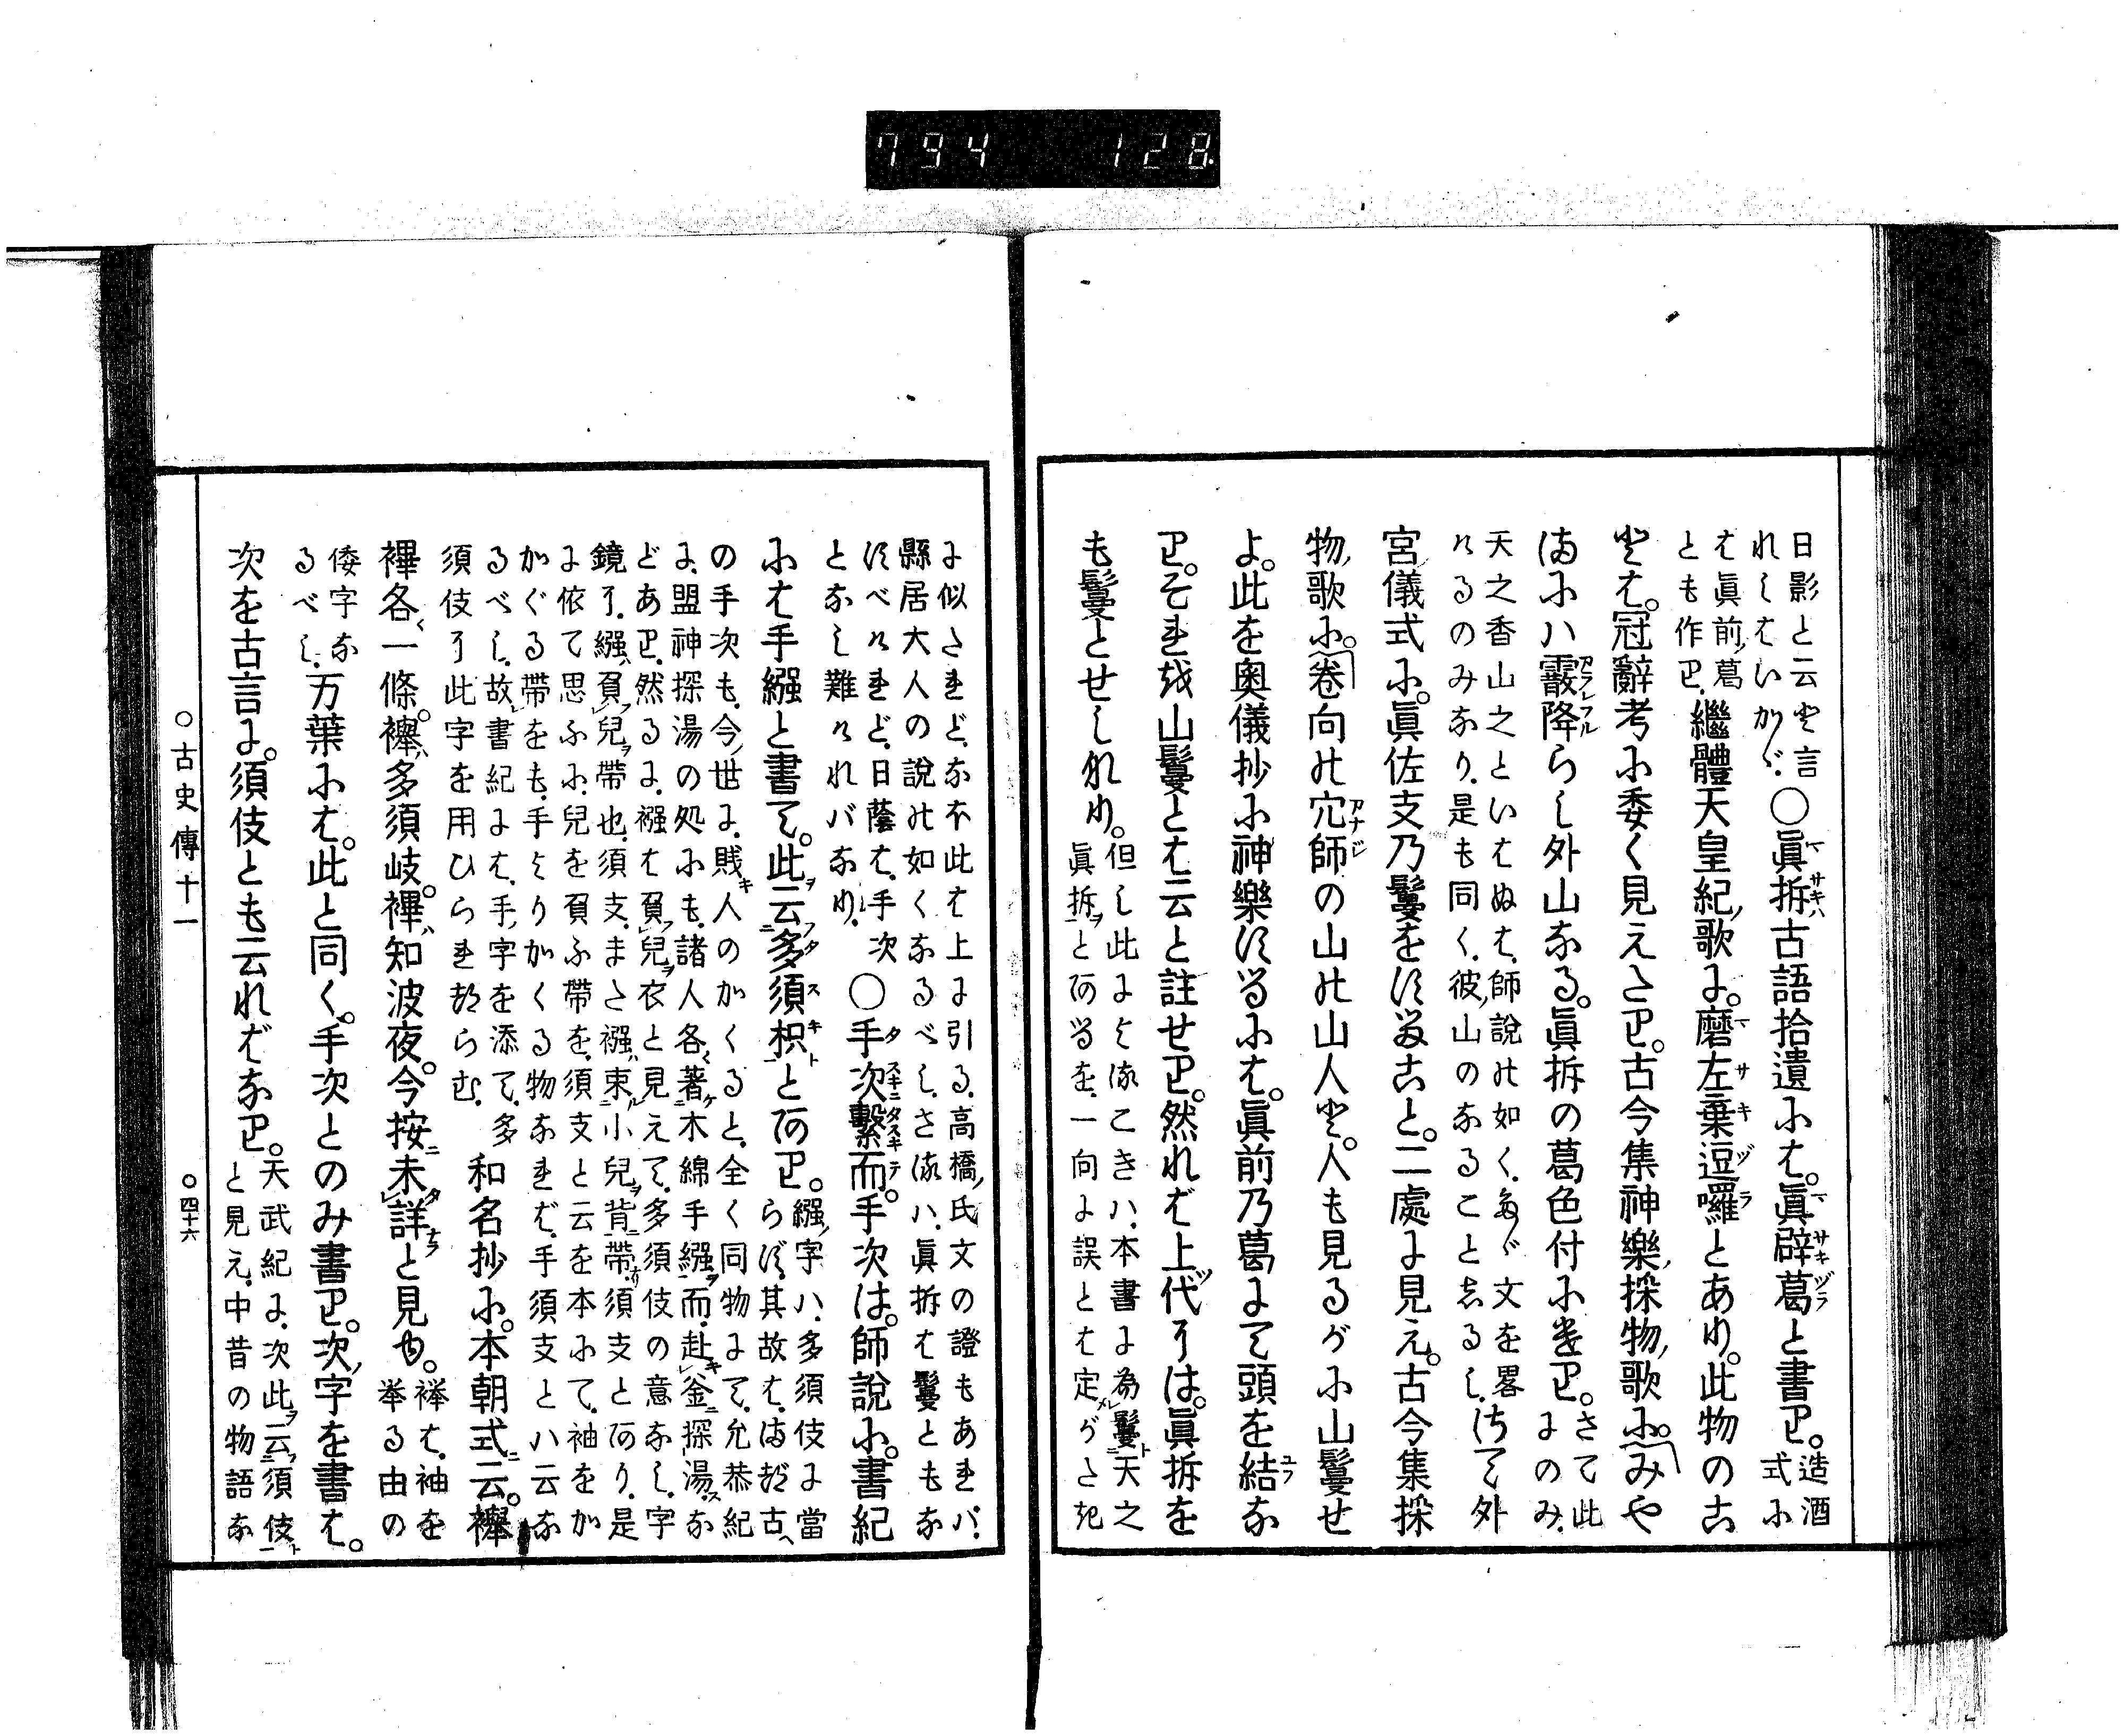 794 128
日影と云そ言
れしはいかゞ
○眞拆古語拾遺には。眞辟葛と書り。
造酒
式に
は眞前葛
とも作り
繼體天皇紀歌に。磨左棄逗囉とあり。此物のこ
とは。冠辭考に委く見えたり。古今集神樂採物歌に。みや
まには霰降らし外山なる。眞拆の葛色付にけり。
さて此
よのみ
天之香山之といはぬは師說の如くたゞ文を畧
けるのみなり是も同く彼山のなることしるし
さて外
宮儀式に。眞佐支乃鬘をすること。二處に見え。古今集採
物歌に。卷向の穴師の山の山人と。人も見るがに山鬘せ
よ。此を奧儀抄に神樂するには。眞前乃葛にて頭を結な
り。それを山鬘とは云と註せり。然れば上代には。眞拆を
も鬘とせしなり。
但し此によるときハ本書に為鬘天之
眞拆とあるを一向に誤とは定がたき
に似たれどなほ此は上に引る高橋氏文の證もあれバ
縣居大人の說の如くなるべしさるハ眞拆は鬘ともな
すべけれど日蔭は手次
となし難けれバなり
○手次繫而。手次は。師說に。書紀
には手繦と書て。此云多須枳とあり。
繦字ハ多須伎に當
らず其故はまづ古
の手次も今世に賤人のかくると全く同物にて允恭紀
に盟神探湯の処にも諸人各著木綿手繦而赴釜探湯な
どあり然るに襁は負兒衣と見えて多須伎の意なし字
鏡に繦負兒帶也須支また襁束小兒背帶須支とあり是
に依て思ふに兒を負ふ帶を須支と云を本にて袖をか
かぐる帶をも手よりかくる物なれば手須支とハ云な
るべし故書紀には手字を添て多
須伎に此字を用ひられつらむ
和名抄に。本朝式云。襷
襅各一條。襷多須岐。襅知波夜。今按未詳と見ゆ。
襷は袖を
挙る由の
倭字な
るべし
万葉には。此と同く。手次とのみ書り。次字を書は。
次を古言に。須伎とも云ればなり。
天武紀に次此云須伎
と見え中昔の物語な
○古史傳十一
○四十六